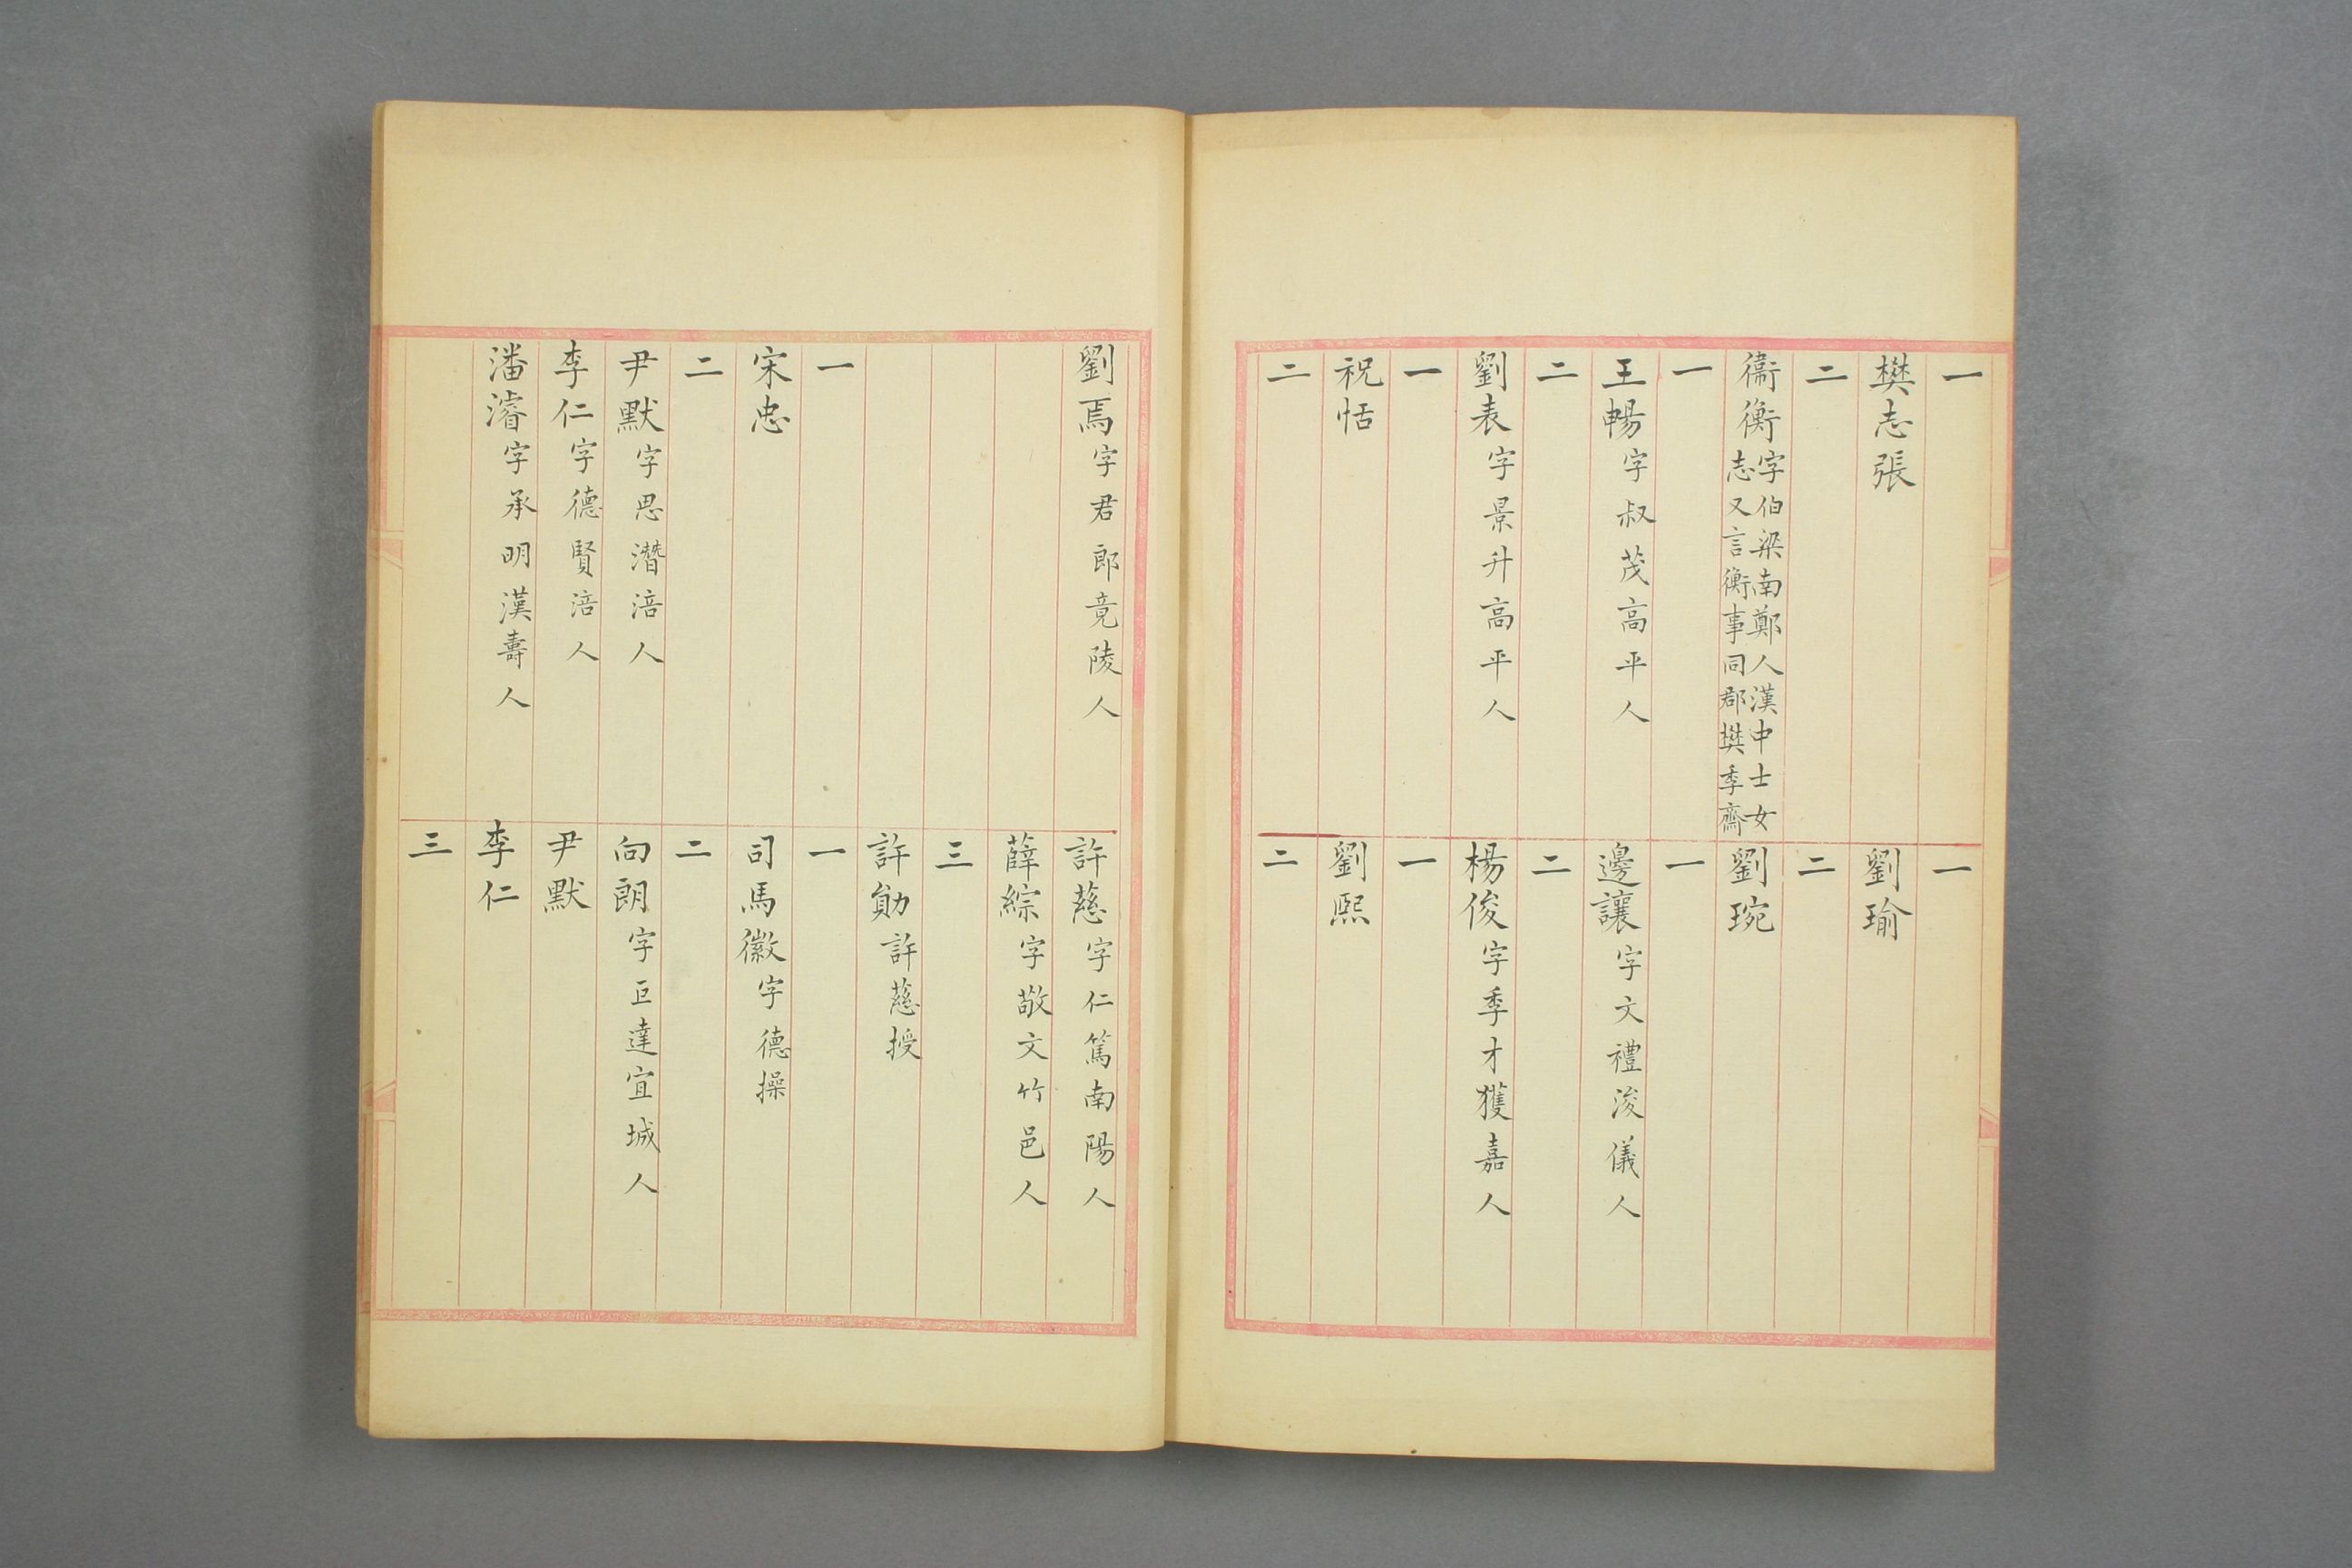 一
樊志張
二
衞衡字伯梁南鄭人漢中士女
志又言衡事同郡樊季齊
一
王暢字叔茂高平人
二
劉表字景升高平人
一
祝恬
二
一
劉瑜
二
劉琬
一
邊讓字文禮浚儀人
二
楊俊字季才獲嘉人
一
劉熙
二
劉焉字君郎竟陵人
一
宋忠
二
尹默字思潛涪人
李仁字德賢涪人
潘濬字承明漢壽人
許慈字仁篤南陽人
薛綜字敬文竹邑人
三
許勛許慈授
一
司馬徽字德操
二
向朗字巨達宜城人
尹默
李仁
三